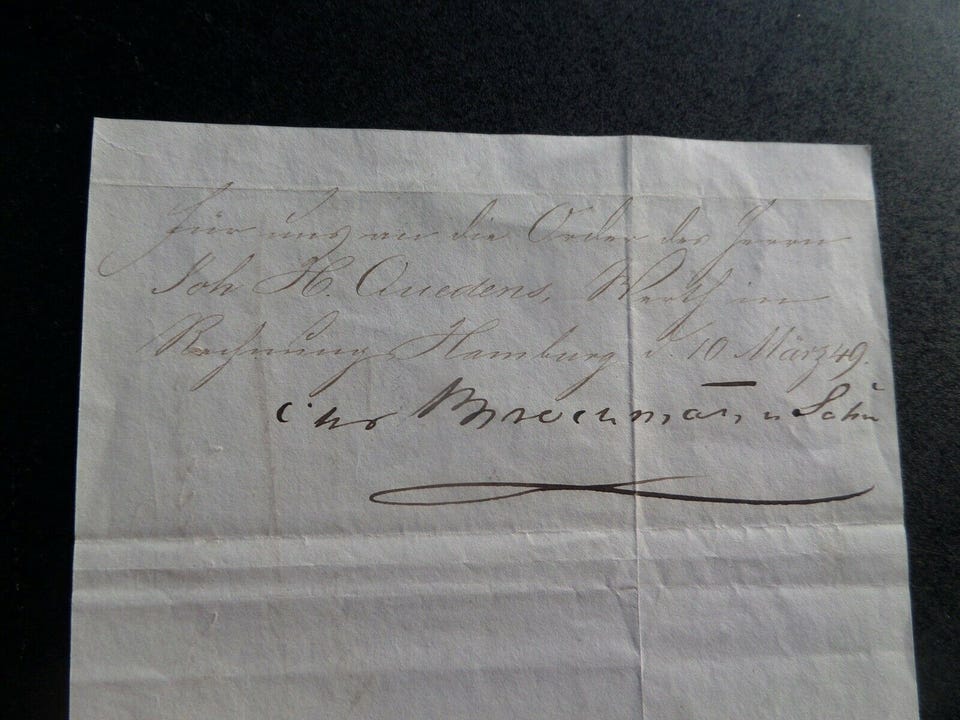 Für uns an die Order des Herrn
Joh H. Quedens, Werth in
Rechnung, Hamburg d. 10 März 49.
u Sohn